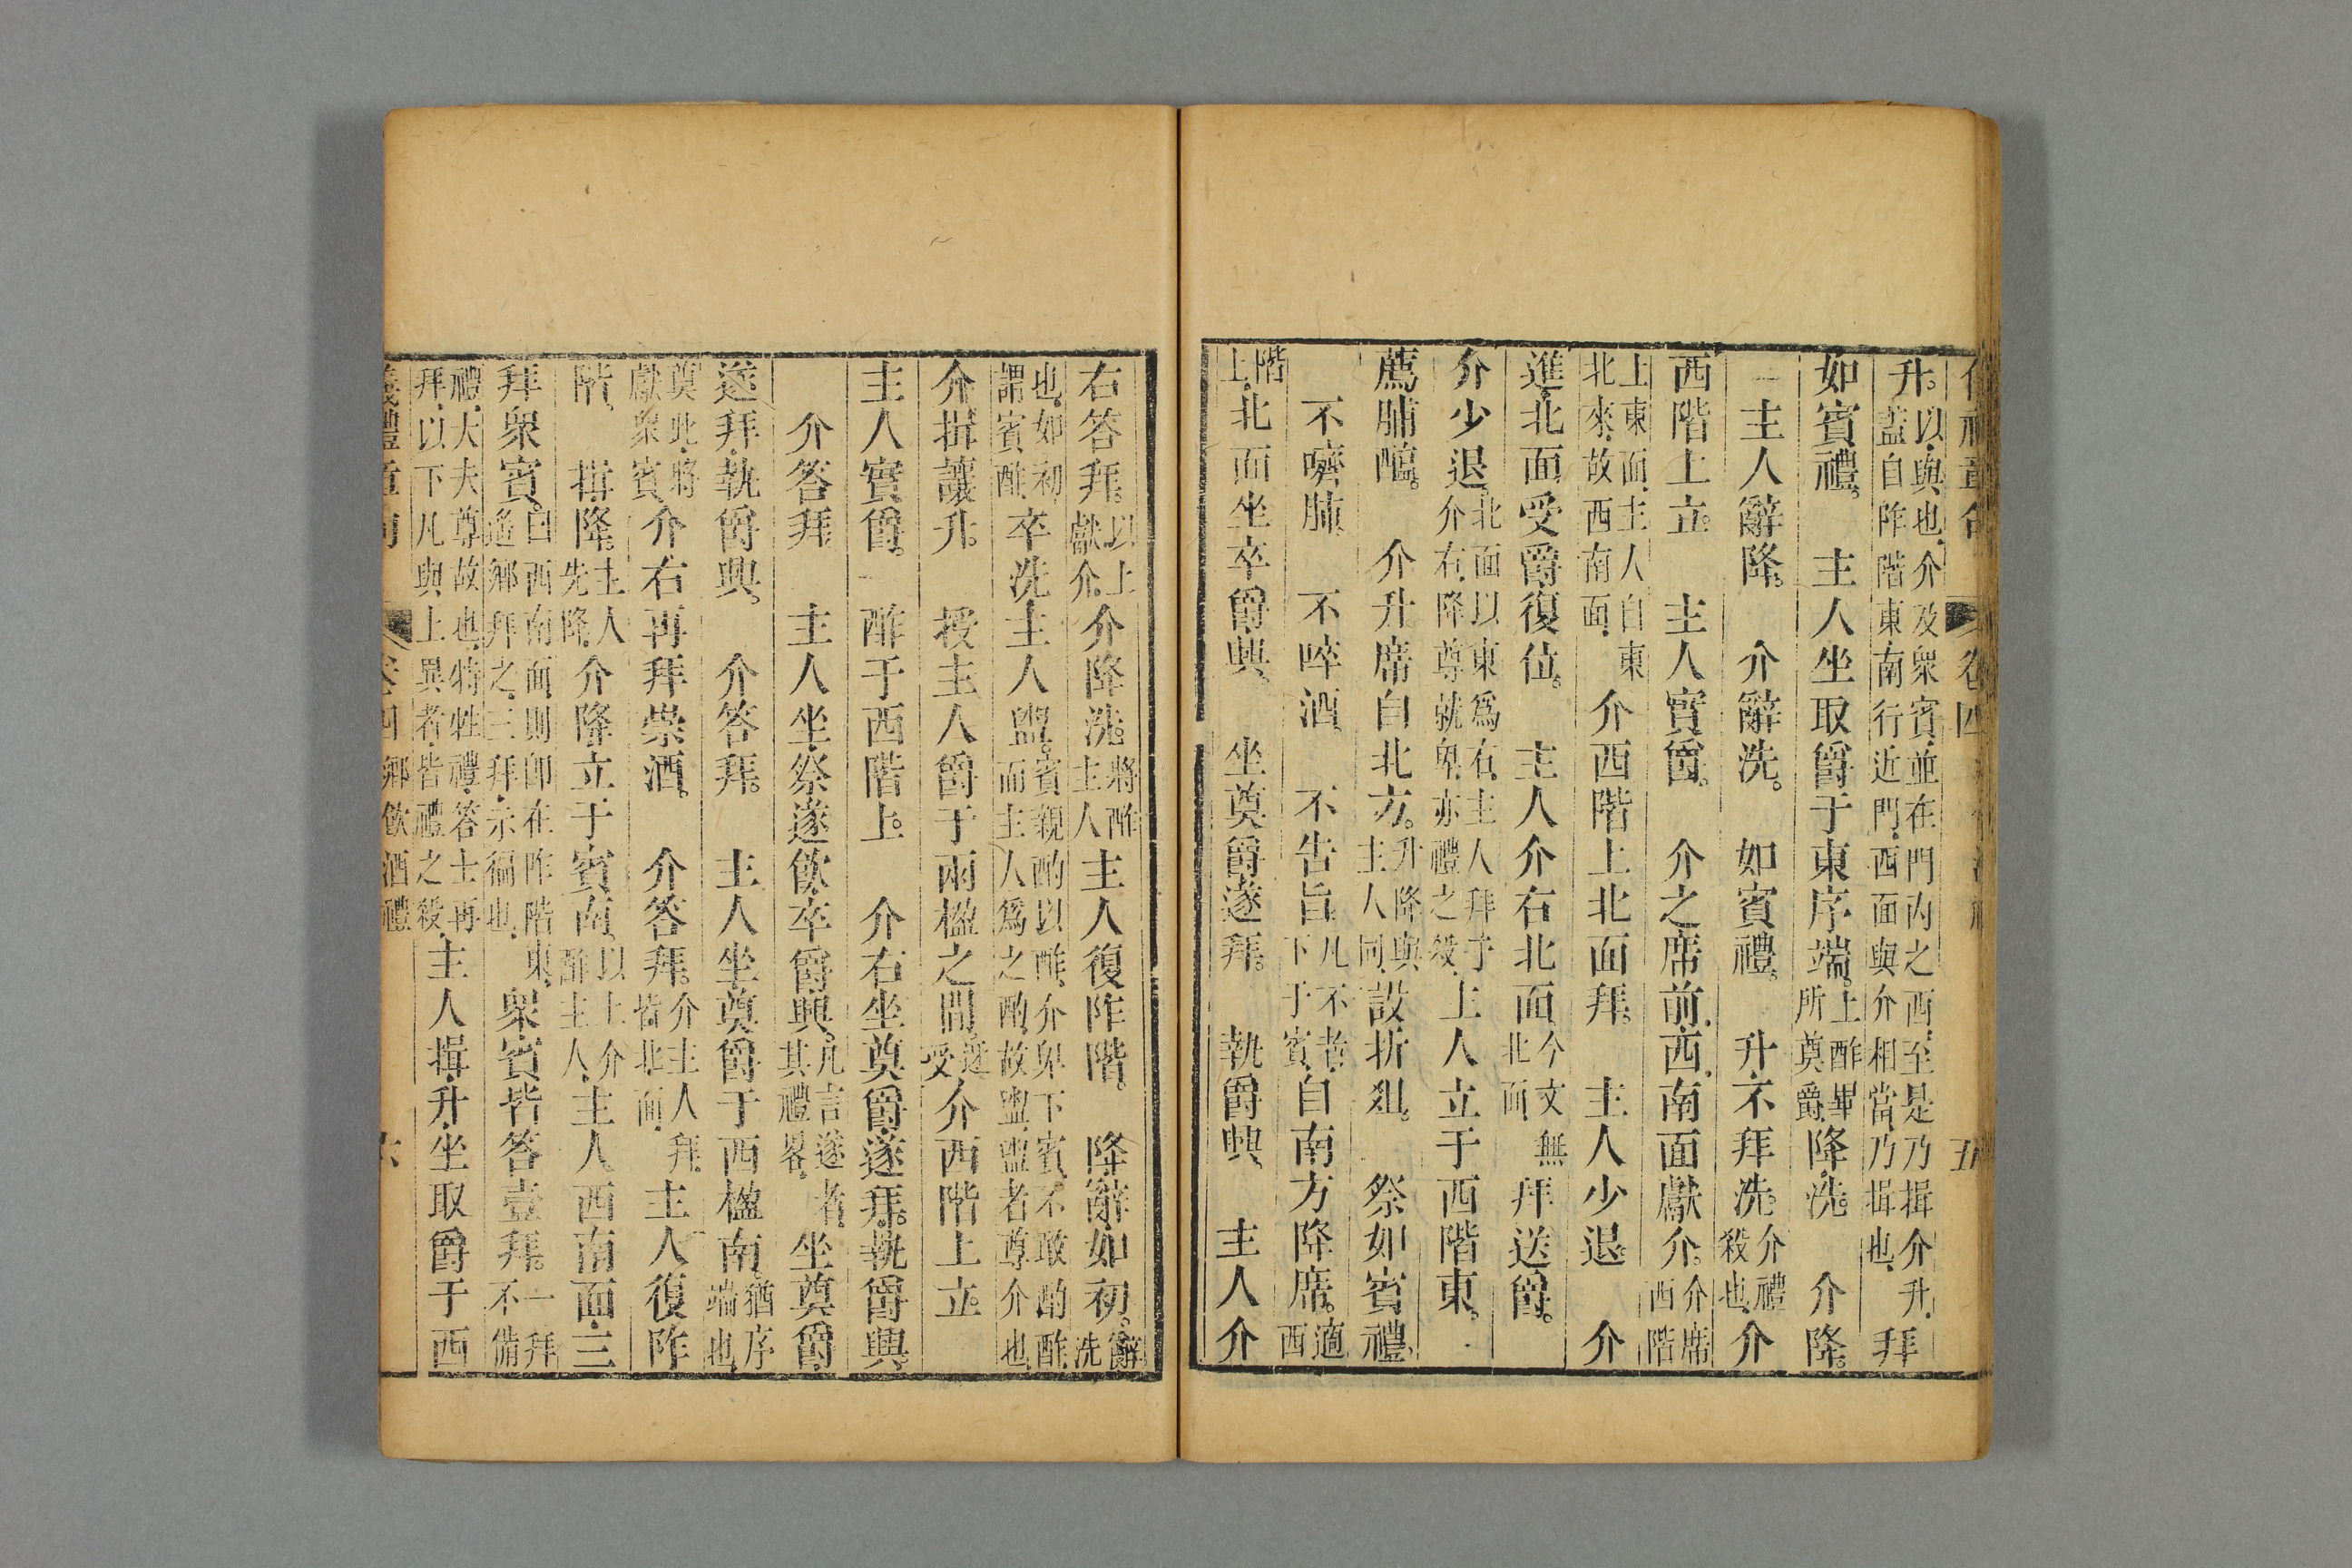 卷四 五
升。以與也介及衆賓並在門內之西至是乃揖介升蓋自阼階東南行近門西面與介相當乃揖也拜
如賓禮。 主人坐取爵于東序端。上酢畢所奠爵降洗。 介降。
主人辭降。 介辭洗。 如賓禮。 升不拜洗。介禮殺也介
西階上立。 主人實爵。 介之席前西南面獻介。介席西階
上東面主人自東北來故西南面 介西階上北面拜。 主人少退 介
進北面受爵復位。 主人介右北面今文無北面拜送爵。
介少退。北面以東爲右主人拜于介右降尊就卑亦禮之殺主人立于西階東。
薦脯醢。 介升席自北方。升降與主人同設折俎。 祭如賓禮。
不嚌肺 不啐酒 不告旨凡不者下于賓自南方降席。適西
階上北面坐卒爵興 坐奠爵遂拜。 執爵興 主人介
右答拜。以上獻介介降洗。將酢主人主人復阼階。 降辭如初。辭洗
也如初謂賓酢卒洗主人盥。賓親酌以酢介卑下賓不敢酌酢而主人爲之酌故盥盥者尊介也
介揖讓升。 授主人爵于兩楹之間。遂受介西階上立。
主人實爵。 酢于西階上。 介右坐奠爵遂拜。執爵興
介答拜 主人坐祭遂飲卒爵興。凡言遂者其禮畧坐奠爵
遂拜執爵興。 介答拜。 主人坐奠爵于西楹南。猶序端也
奠此將獻衆賓介右再拜崇酒。 介答拜。介主人拜皆北面主人復阼
階 揖降。主人先降介降立于賓南。以上介酢主人主人西南面三
拜衆賓。曰西南面則卽在阼階東遙鄉拜之三拜示徧也衆賓皆答壹拜。一拜不備
禮大夫尊故也特牲禮答士再拜以下凡與上異者皆禮之殺主人揖升坐取爵于西
儀禮章句 卷四 鄉飲酒禮 六